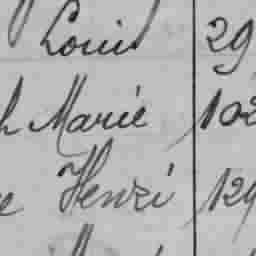 Louis 29
h Marie 102
e Henri 129